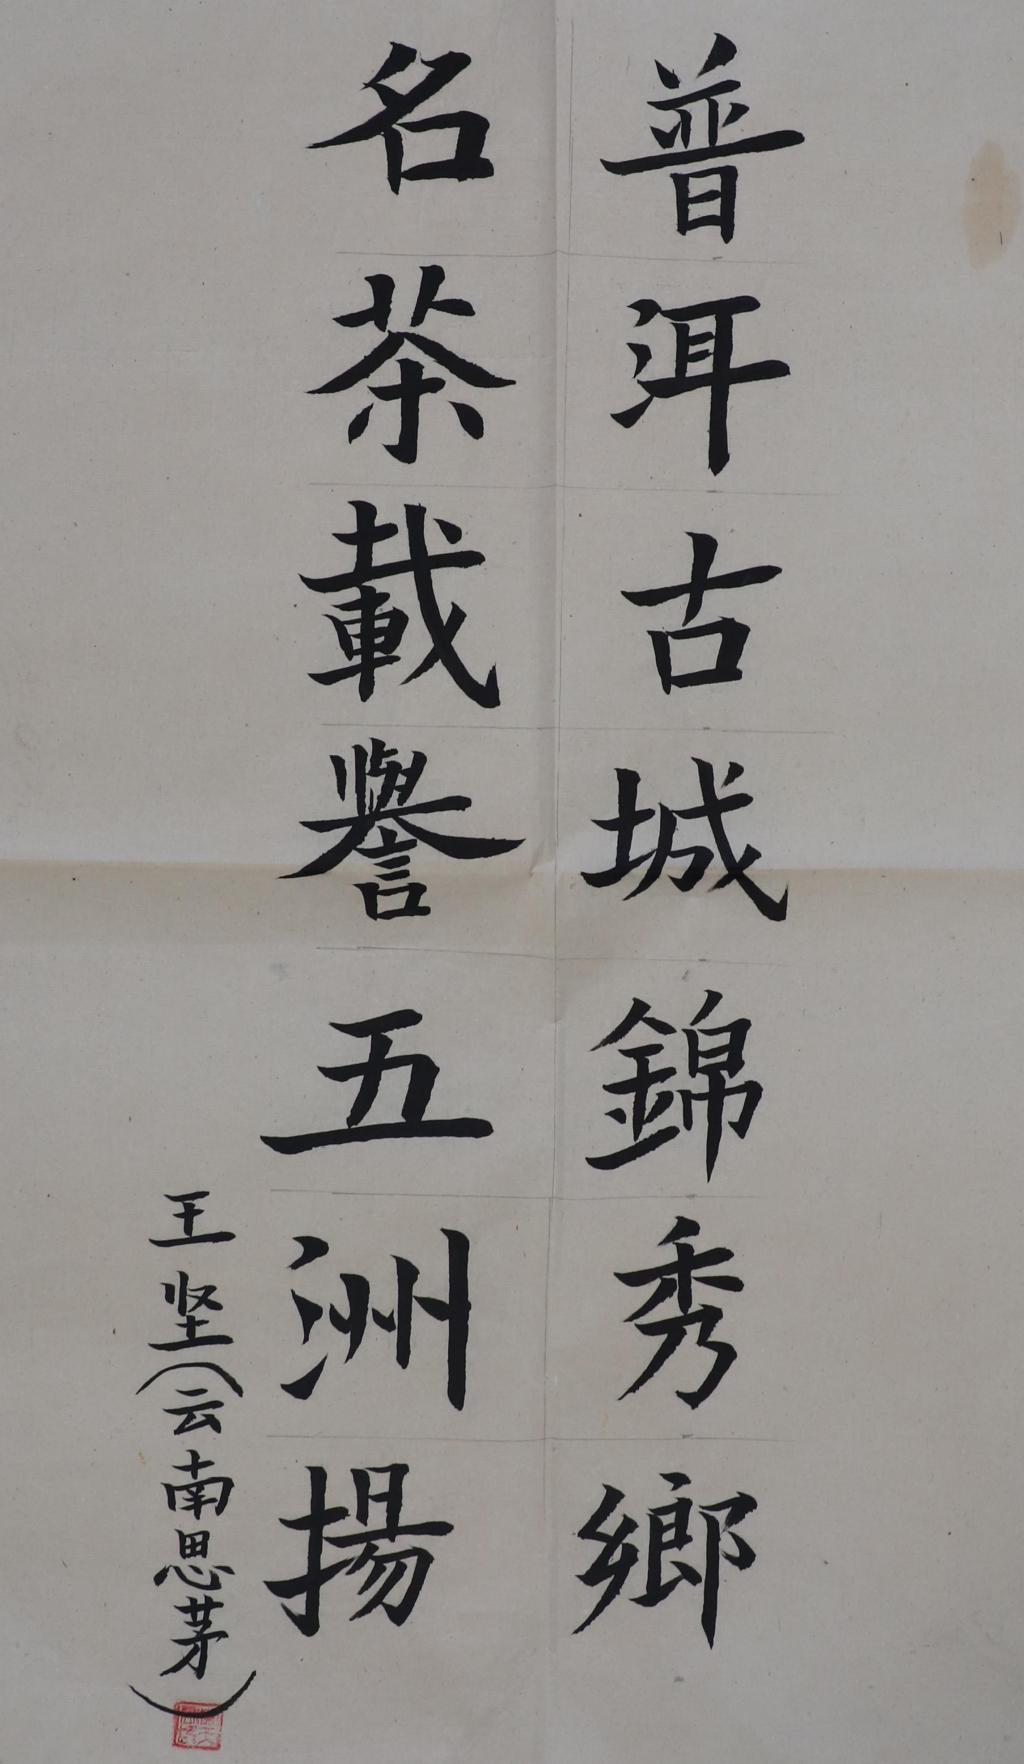 普洱古城錦秀鄉
名茶載譽五洲揚
王坚(云南思茅)